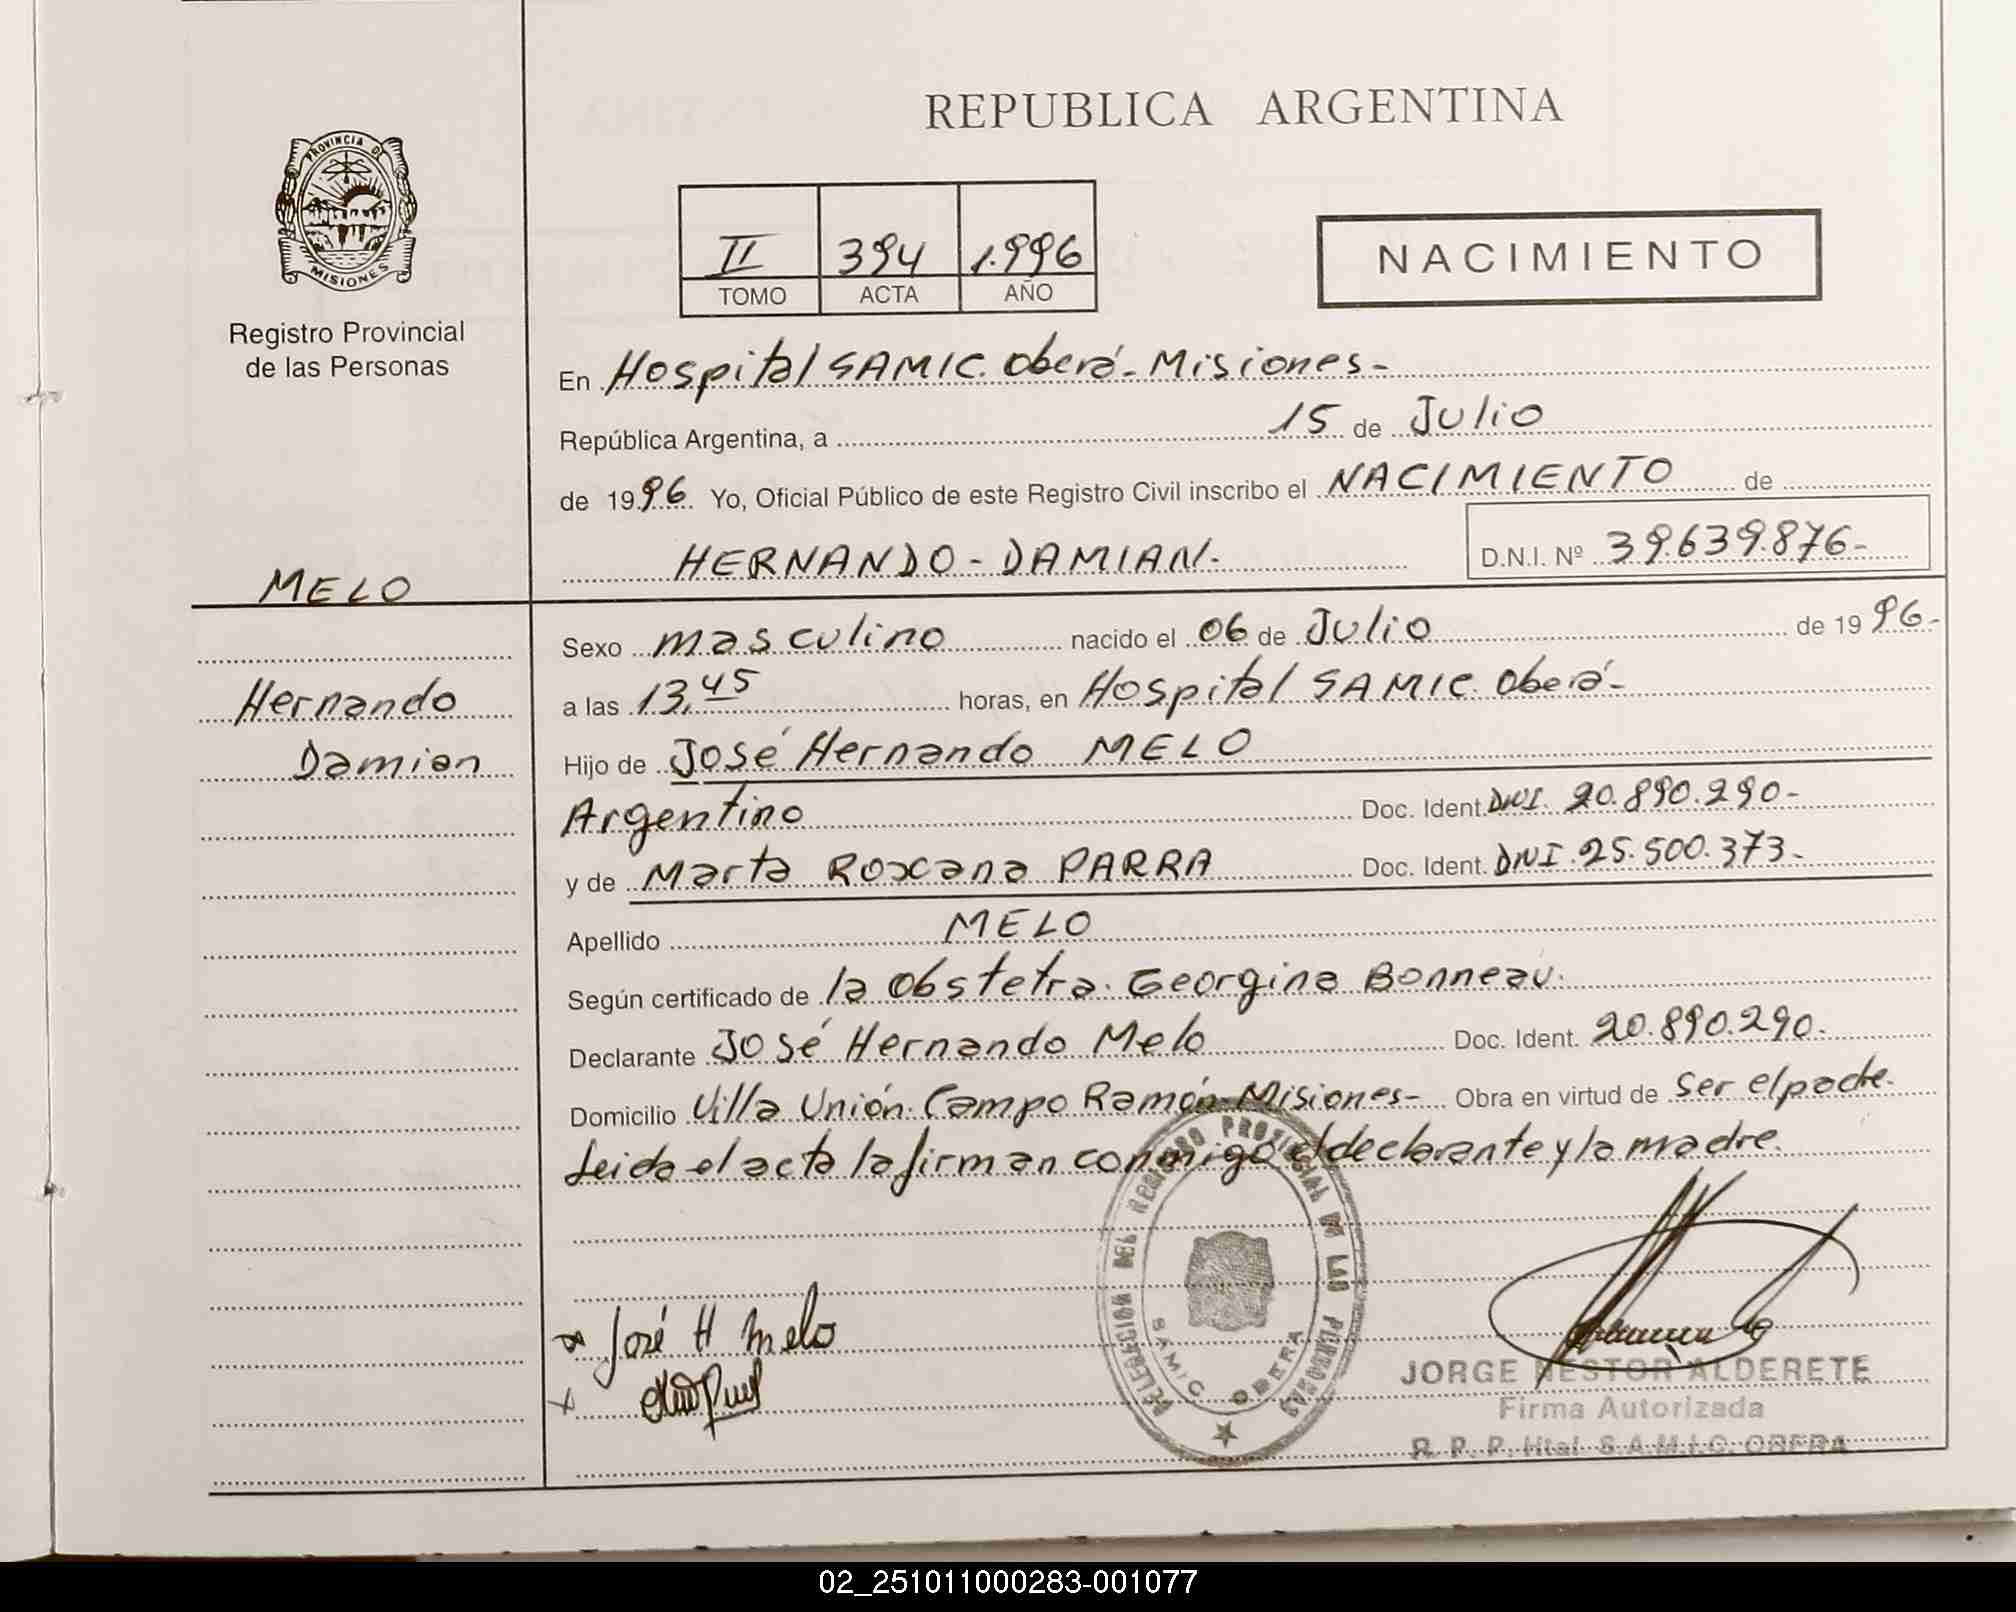 REPUBLICA ARGENTINA
PROVINCIA DE
MISIONES
Registro Provincial
de las Personas
II 394 1.996
TOMO ACTA AÑO
NACIMIENTO
En Hospital SAMIC. Oberá - Misiones -
República Argentina, a 15 de Julio
de 1996. Yo, Oficial Público de este Registro Civil inscribo el NACIMIENTO de
HERNANDO - DAMIAN.
D.N.I. Nº 39.639.876-
MELO
Hernando
Damian
Sexo masculino nacido el 06 de Julio de 1996-
a las 13,45 horas, en Hospital SAMIC. Oberá-
Hijo de José Hernando MELO
Argentino Doc. Ident. DNI. 20.890.290-
y de Marta Roxana PARRA Doc. Ident. DNI. 25.500.373-
Apellido MELO
Según certificado de la obstetra. Georgina Bonneau.
Declarante José Hernando Melo Doc. Ident. 20.890.290.
Domicilio Villa Unión. Campo Ramón - Misiones - Obra en virtud de ser el padre.
Leida el acta la firman conmigo el declarante y la madre.
DELEGACION DEL REGISTRO PROVINCIAL DE LAS PERSONAS
SAMIC OBERA
José H Melo
JORGE NESTOR ALDERETE
Firma Autorizada
R. P. P. Htal. S.A.M.I.C. OBERA
02_251011000283-001077